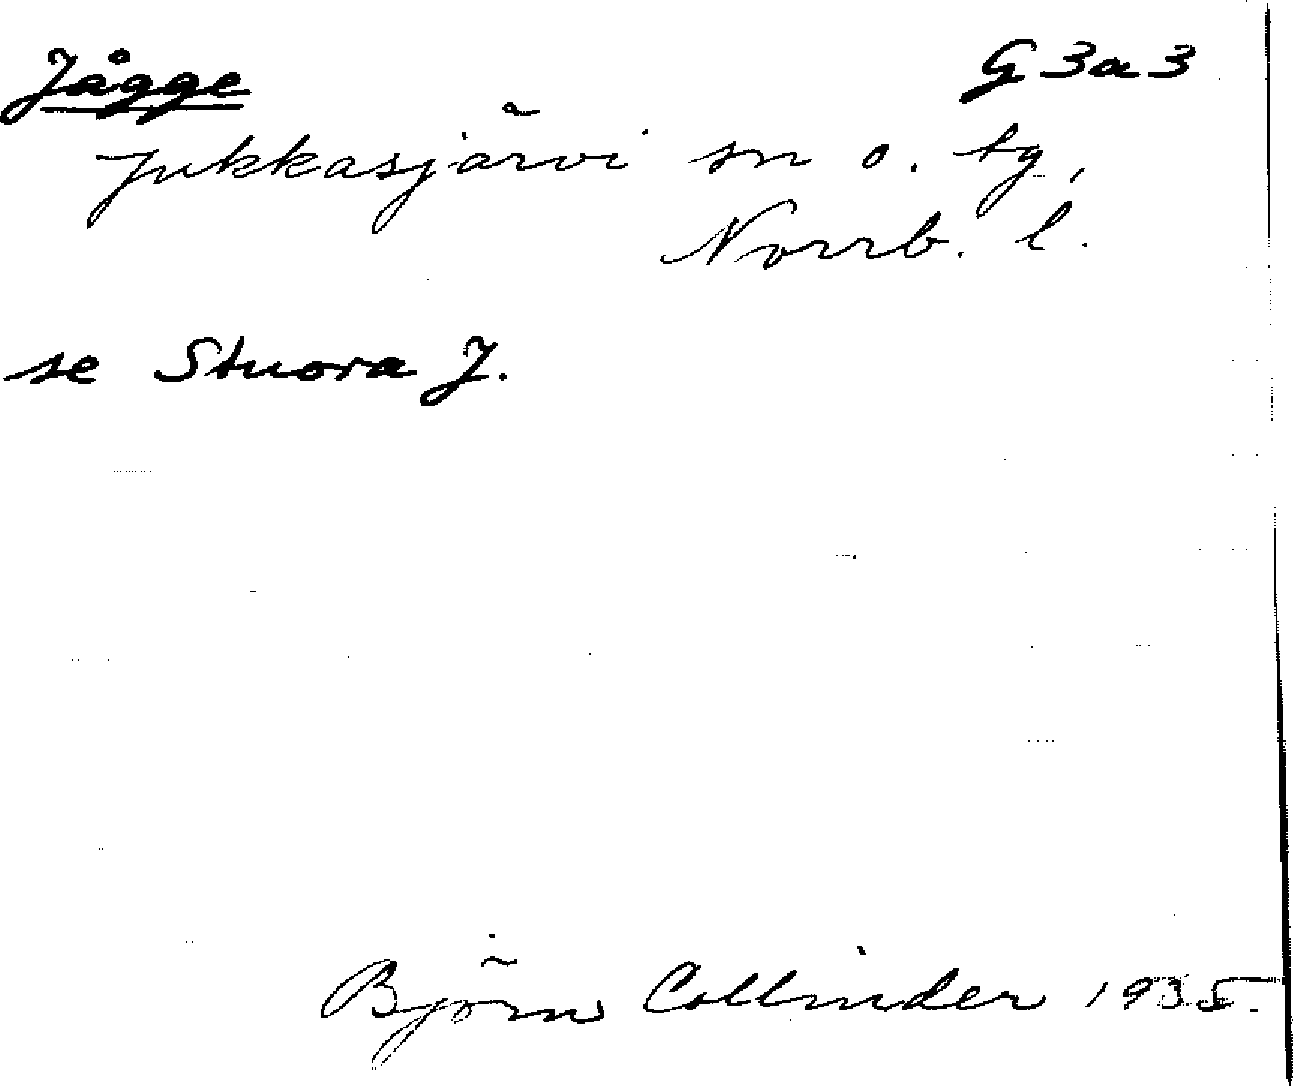 Jågge G 3 a 3
Jukkasjärvi sn o. tg,
Norrb. l.
se Stuora J.
Björn Collinder 1935.